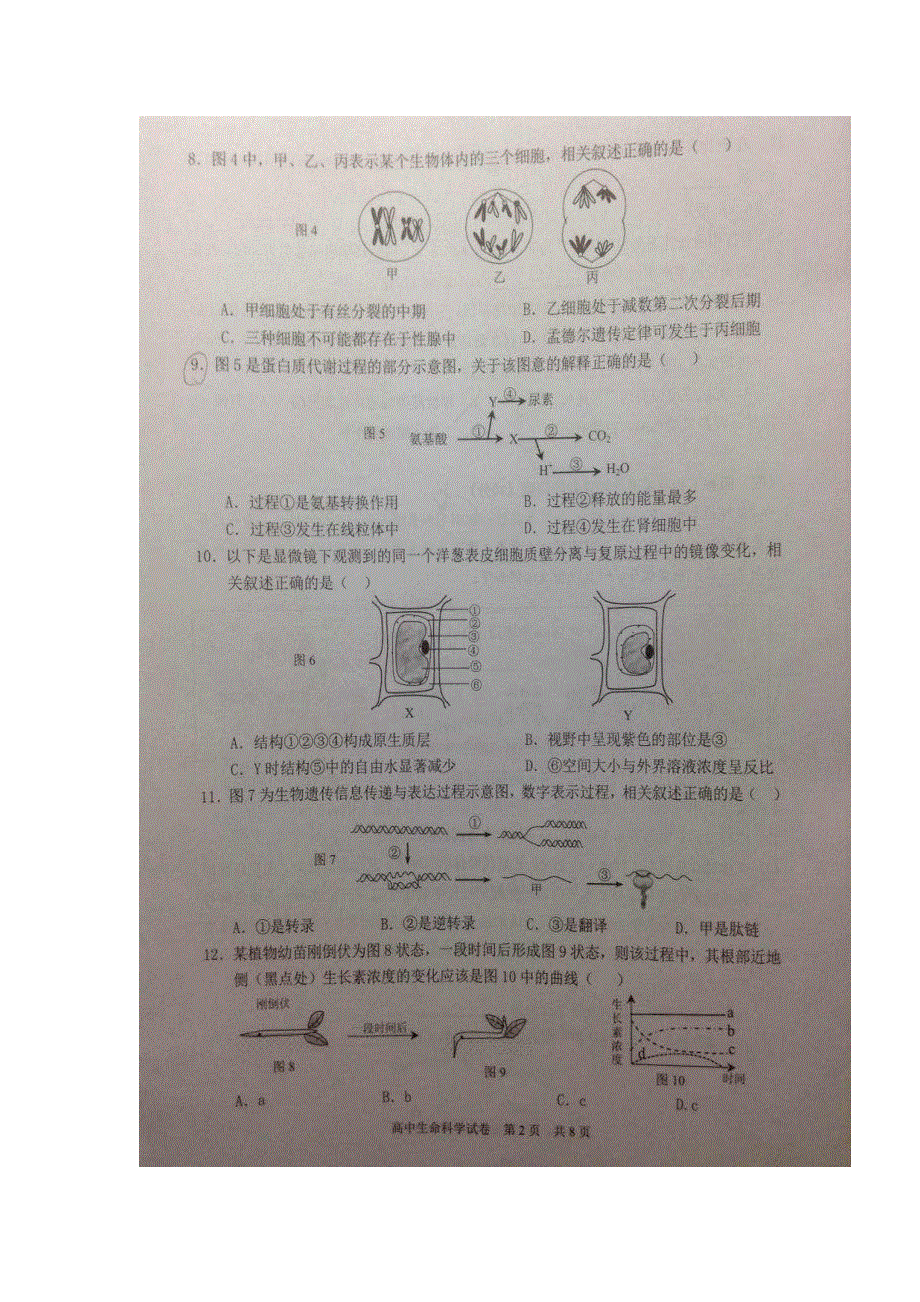 8. 图4中，甲、乙、丙表示某个生物体内的三个细胞，相关叙述正确的是（ ）
图4
甲 乙 丙
A. 甲细胞处于有丝分裂的中期 B. 乙细胞处于减数第二次分裂后期
C. 三种细胞不可能都存在于性腺中 D. 孟德尔遗传定律可发生于丙细胞
9. 图5是蛋白质代谢过程的部分示意图，关于该图意的解释正确的是（ ）
Y ④ 尿素
图5 氨基酸 ① X ② CO₂
H⁺ ③ H₂O
A. 过程①是氨基转换作用 B. 过程②释放的能量最多
C. 过程③发生在线粒体中 D. 过程④发生在肾细胞中
10. 以下是显微镜下观测到的同一个洋葱表皮细胞质壁分离与复原过程中的镜像变化，相
关叙述正确的是（ ）
①
②
③
④
⑤
⑥
图6
X Y
A. 结构①②③④构成原生质层 B. 视野中呈现紫色的部位是③
C. Y时结构⑤中的自由水显著减少 D. ⑥空间大小与外界溶液浓度呈反比
11. 图7为生物遗传信息传递与表达过程示意图，数字表示过程，相关叙述正确的是（ ）
①
图7 ②
甲 ③
A. ①是转录 B. ②是逆转录 C. ③是翻译 D. 甲是肽链
12. 某植物幼苗刚倒伏为图8状态，一段时间后形成图9状态，则该过程中，其根部近地
侧（黑点处）生长素浓度的变化应该是图10中的曲线（ ）
刚倒伏
一段时间后
图8
图9
生长素浓度
a
b
c
d
时间
图10
A. a B. b C. c D.c
高中生命科学试卷 第2页 共8页